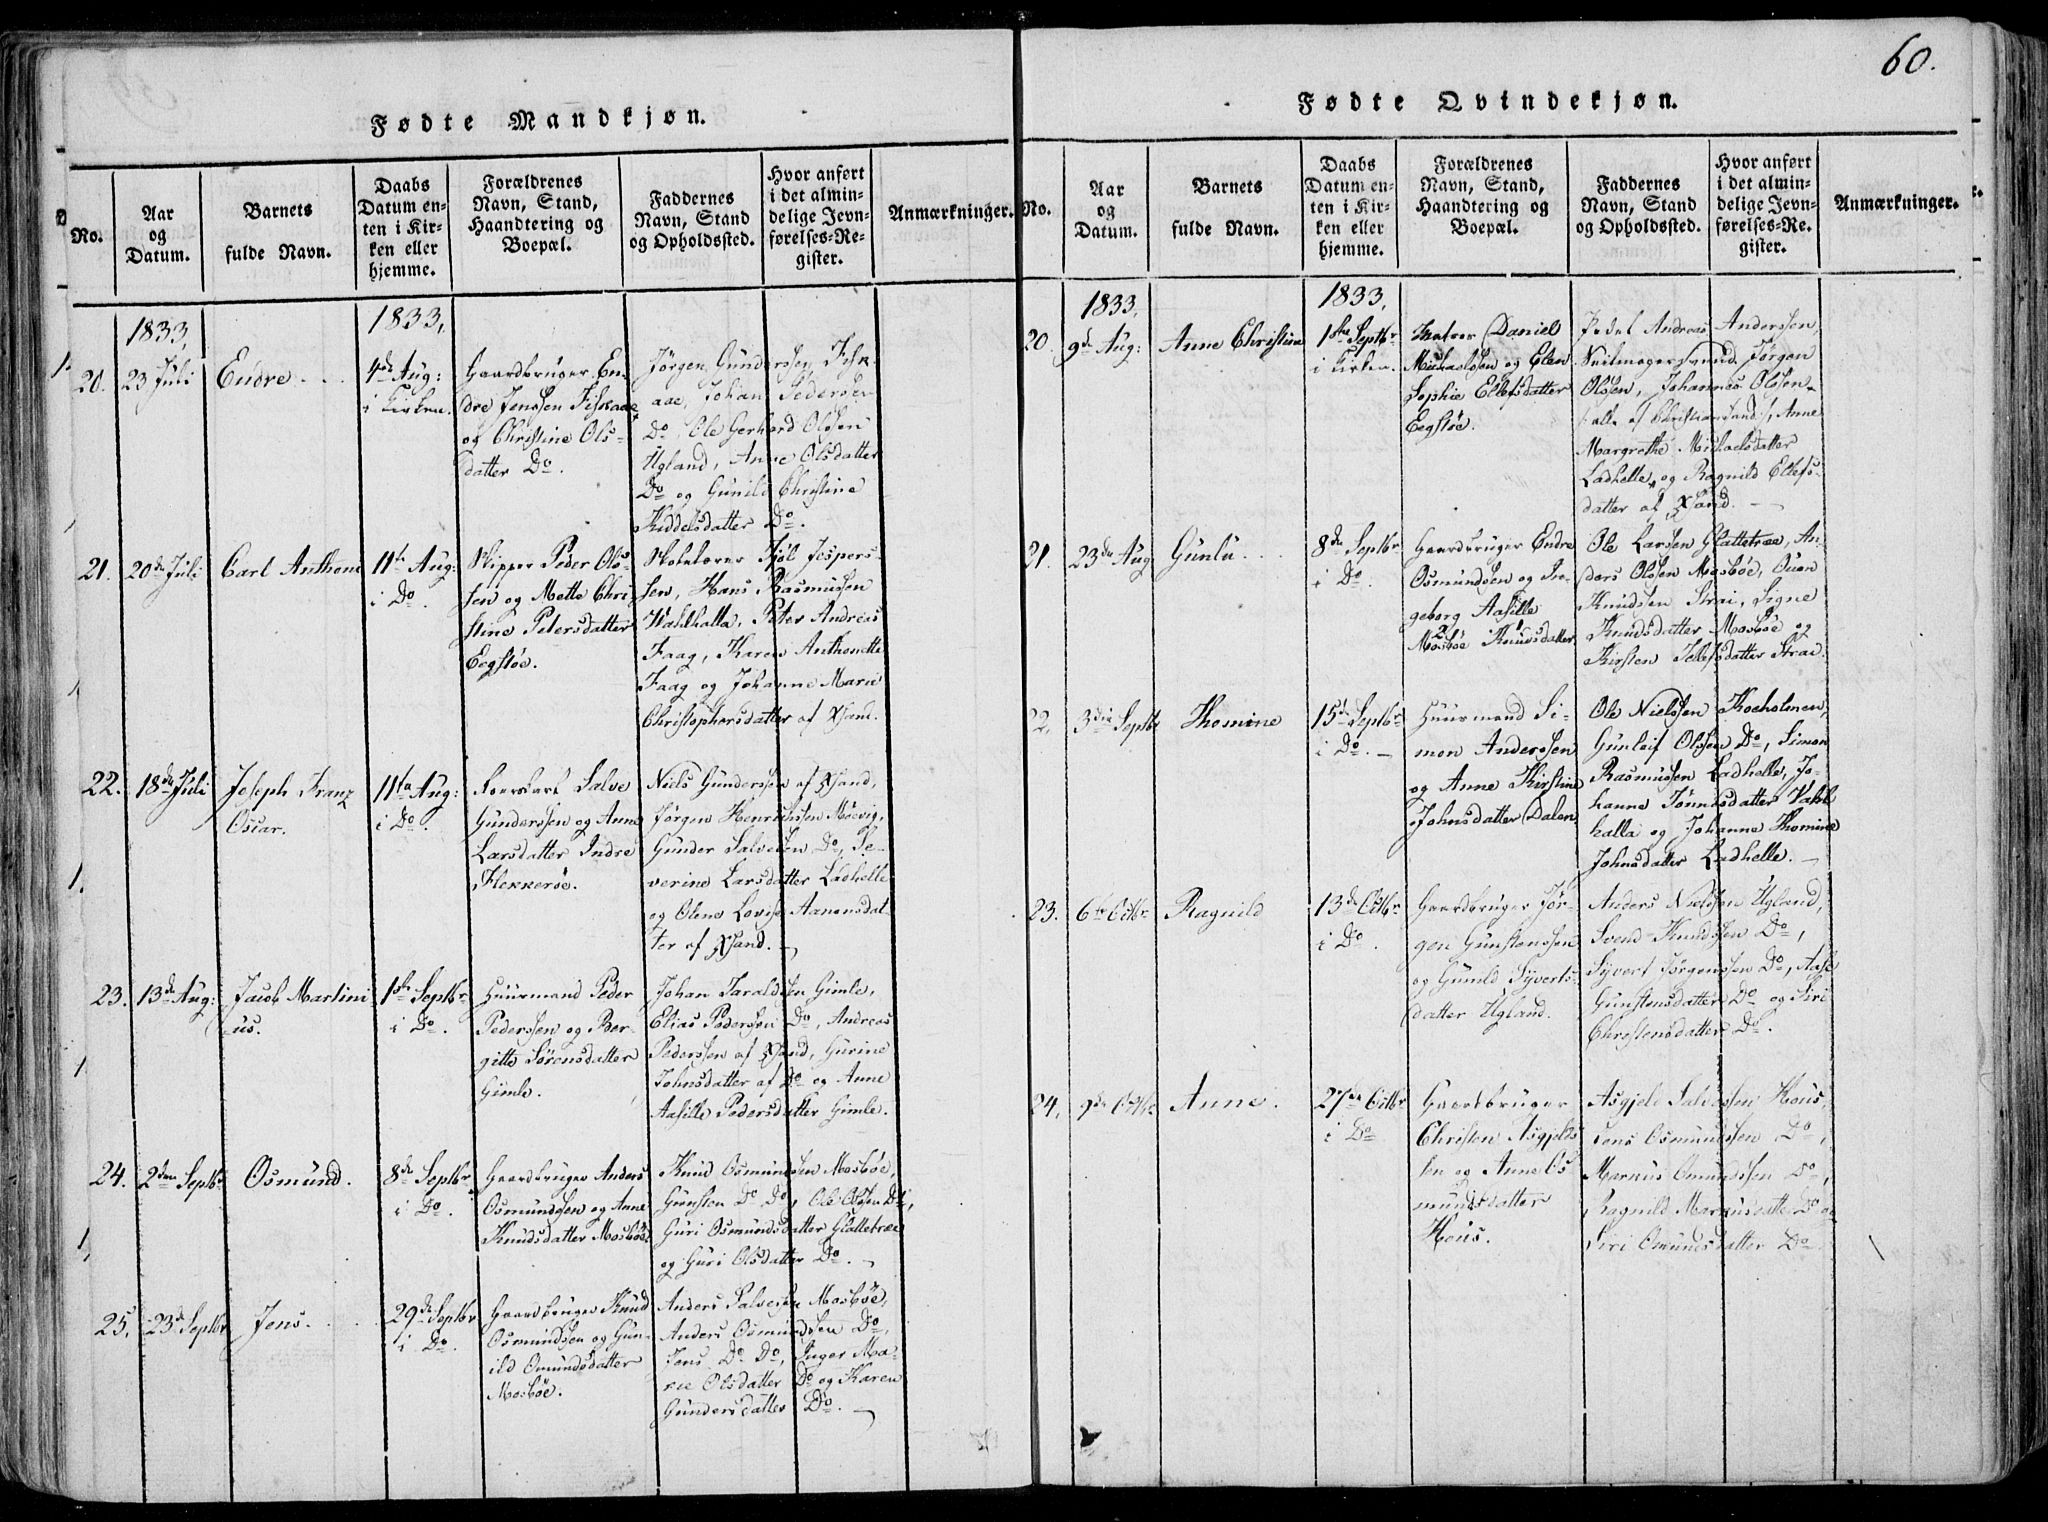 60.
Fødte Mandkjøn.
No.
Aar og Datum.
Barnets fulde Navn.
Daabs Datum enten i Kirken eller hjemme.
Forældrenes Navn, Stand, Haandtering og Boepæl.
Faddernes Navn, Stand og Opholdssted.
Hvor anført i det almindelige Jevnførelses-Register.
Anmærkninger.
1833,
1833,
20.
23 Juli
Endre
4de Aug:
i Kirken.
Gaardbruger En-
dre Jenssen Fiskaae
og Christine Ols-
datter Do.
Jørgen Gunderssen Fisk-
aae, Johan Pedersen
Do, Ole Gerhard Olssen
Ugland, Anne Olsdatter
Do og Gunild Christine
Kiddelsdatter Do.
21.
20de Juli
Carl Anthone
11te Aug:
i Do.
Skipper Peder Ols-
sen og Mette Chri-
stine Petersdatter
Eegstøe.
Skolelærer Fjøl Jespers-
sen, Hans Rasmussen
Wahlhalla, Peter Andreas
Faag, Karen Anthonette
Faag og Johanne Marie
Christophersdatter af Xsand.
22.
18de Juli
Joseph Franz
Oscar.
11te Aug:
i Do.
Salve
Gunderssen og Anne
Larsdatter Indre
Flekkerøe.
Niels Gunderssen af Xsand,
Jørgen Henrichssen Møevig,
Gunder Salvesen Do, Se-
verine Larsdatter Ladhelle
og Olene Lovise Aanonsdat-
ter af Xsand.
23.
13de Aug:
Jacob Martini
us.
1ste Septbr
i Do.
Huusmand Peder
Pederssen og Ber-
gitte Sørensdatter
Gimle.
Johan Taraldsen Gimle,
Elias Pederssen Do, Andreas
Pederssen af Xsand, Gurine
Johnsdatter af Do og Anne
Aasille Pedersdatter Gimle.
24.
2den Septbr
Osmund.
8de Septbr
i Do.
Gaardbruger Anders
Osmundssen og Anne
Knudsdatter Mosbøe
Knud Osmundssen Mosbøe,
Gunsten Do Do, Ole Olssen Do,
Guri Osmundsdatter Glattetræe
og Guri Olsdatter Do.
25.
23de Septbr
Jens.
29de Septbr
i Do
Gaardbruger Knud
Osmundssen og Gun-
ild Omundsdatter
Mosbøe.
Anders Salvesen Mosbøe,
Anders Osmundssen Do,
Jens Do Do, Inger Ma-
rie Olsdatter Do og Karen
Gundersdatter Do.
Fødte Qvindekjøn.
No.
Aar og Datum.
Barnets fulde Navn.
Daabs Datum enten i Kirken eller hjemme.
Forældrenes Navn, Stand, Haandtering og Boepæl.
Faddernes Navn, Stand og Opholdssted.
Hvor anført i det almindelige Jevnførelses-Register.
Anmærkninger.
1833,
1833,
20.
9de Aug:
Anne Christine
1ste Septbr
i Kirken.
Matros Daniel
Michaelssen og Elen
Sophie Ellefsdatter
Eegstøe.
Andreas Anderssen,
Seilmagersvend Jørgen
Olssen, Johannes Olssen
/:alle af Christianssand:/, Anne
Margrethe Michaelsdatter
Ladhelle og Ragnild Ellefs-
datter af Xsand.
21.
23de Aug
Gunlu
8de Septbr
i Do.
Gaardbruger Endre
Osmundssen og In-
geborg Aasille
Mosbøe Knudsdatter
Ole Larssen Glattetræe, An-
ders Olssen Mosbøe, Ouen
Knudssen Strai, Signe
Knudsdatter Mosbøe og
Kirsten Tellefsdatter Strai.
22.
3die Septbr
Thomine
15de Septbr
i Do.
Huusmand Si-
mon Anderssen
og Anne Kirstine
Johnsdatter Dalen
Ole Nielssen Koeholmen,
Gunleif Olssen Do, Simon
Rasmussen Ladhelle, Jo-
hanne Tønnesdatter Vahl
halla og Johanne Thomine
Johnsdatter Ladhelle.
23.
6te Octbr
Ragnild
13de Octbr
i Do.
Gaardbruger Jør-
gen Gunstenssen
og Gunild Syverts-
datter Ugland.
Anders Nielssen Ugland,
Svend Knudssen Do,
Syvert Jørgenssen Do, Aase
Gunstensdatter Do og Siri
Christensdatter Do.
24.
9de Octbr
Anne.
27de Octbr
i Do
Gaardbruger
Christen Asgjelds
sen og Anne Os
mundsdatter
Hous.
Asgjeld Salvessen Hous,
Jens Osmundssen Do,
Markus Omundssen Do,
Ragnild Markusdatter Do og
Siri Omundsdatter Do.